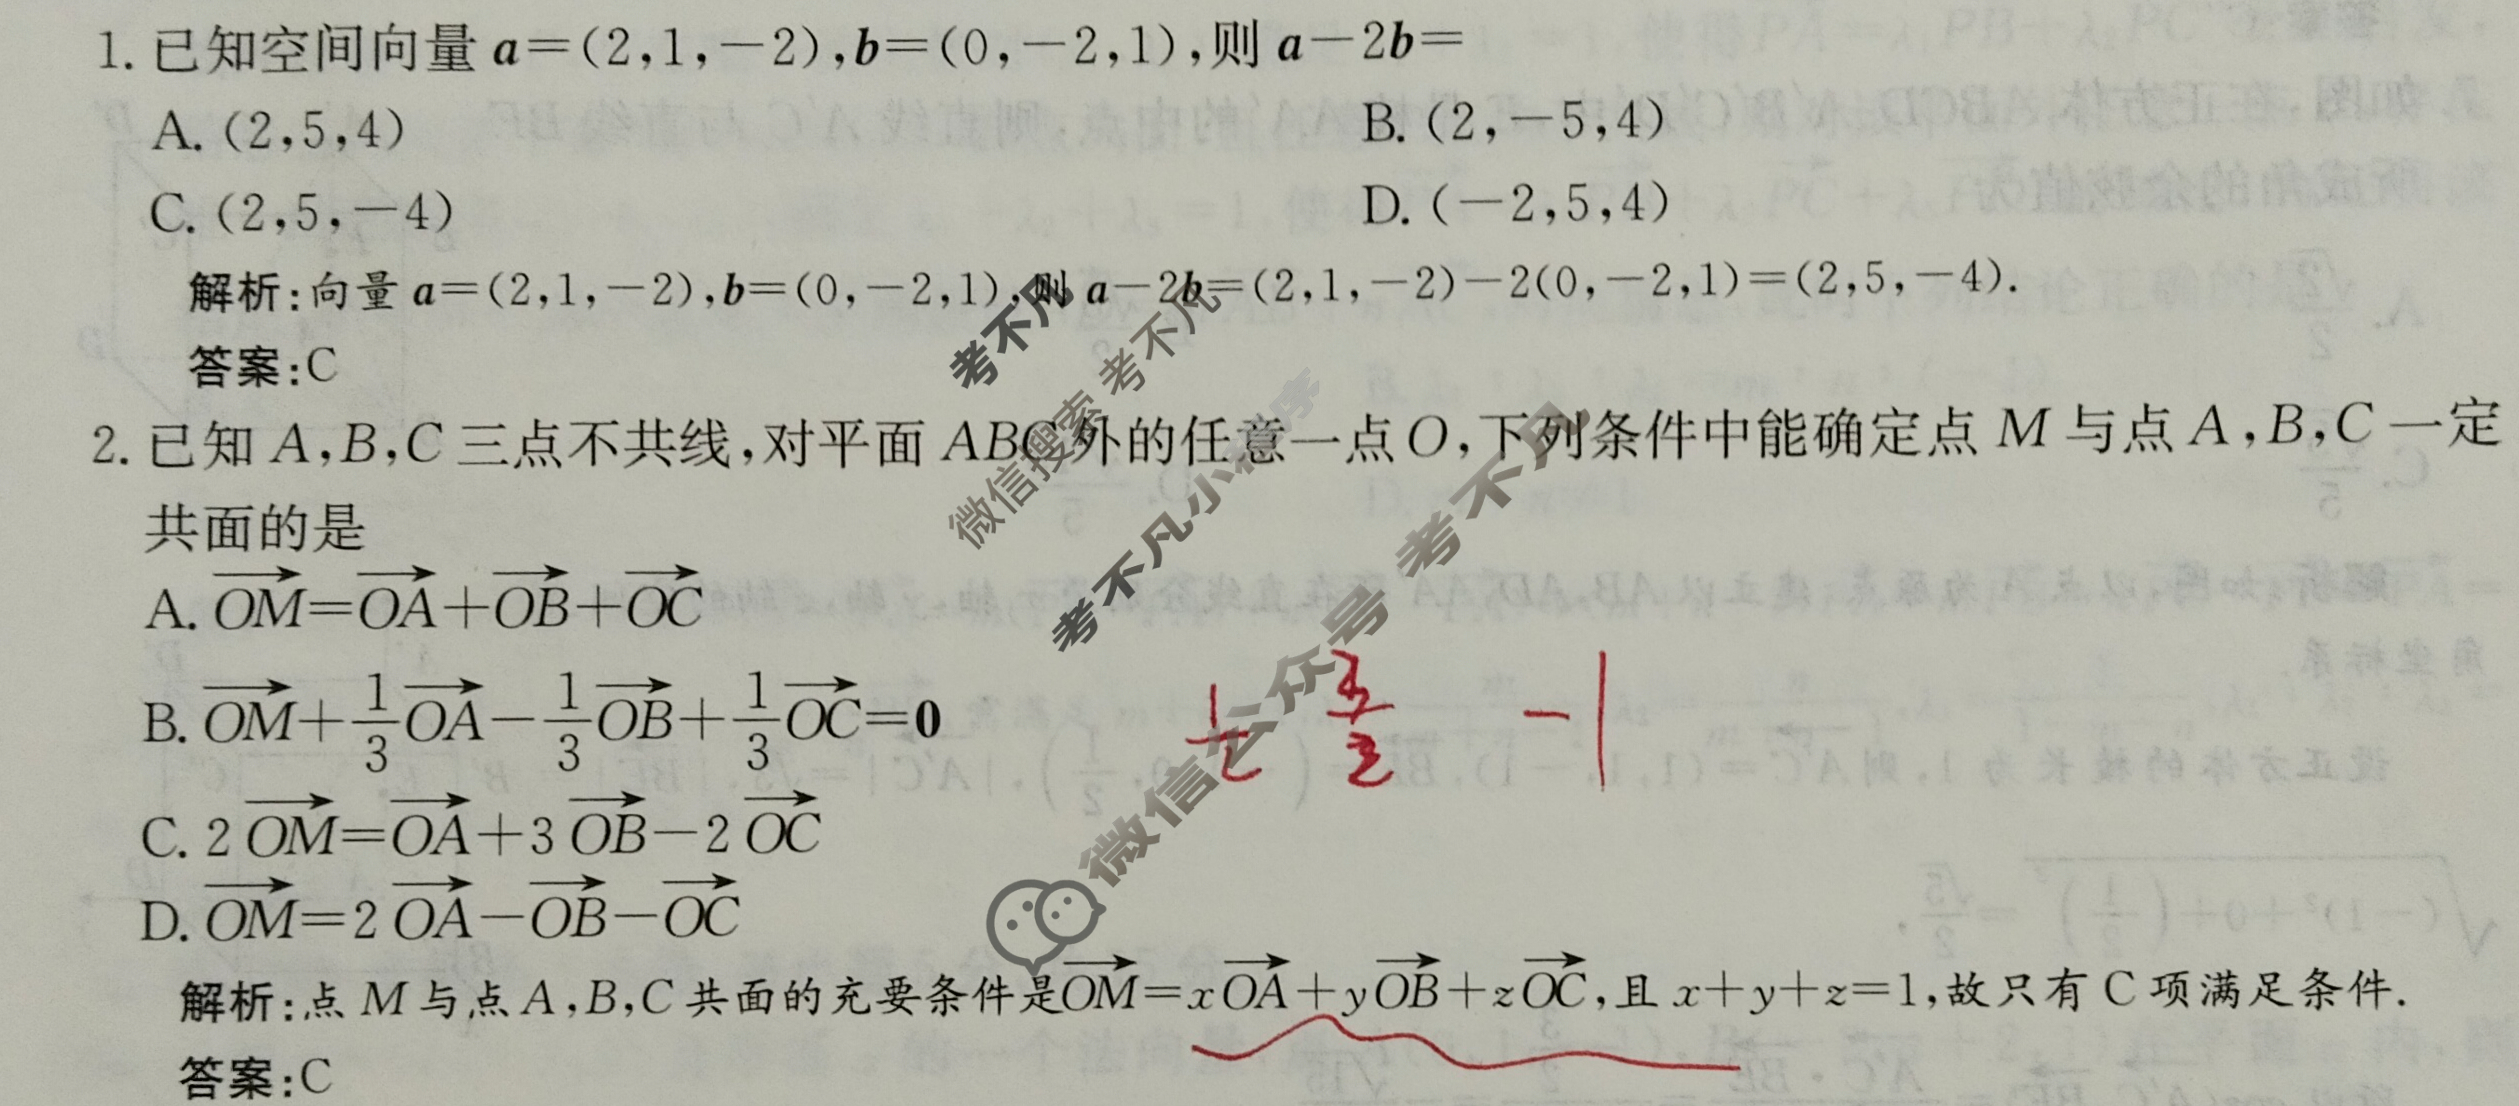 1. 已知空间向量 a=(2,1,-2),b=(0,-2,1),则 a-2b=
A. (2,5,4)
B. (2,-5,4)
C. (2,5,-4)
D. (-2,5,4)
解析:向量 a=(2,1,-2),b=(0,-2,1),则 a-2b=(2,1,-2)-2(0,-2,1)=(2,5,-4).
答案:C
2. 已知 A,B,C 三点不共线,对平面 ABC 外的任意一点O,下列条件中能确定点 M 与点 A,B,C 一定
共面的是
A. \overrightarrow{OM}=\overrightarrow{OA}+\overrightarrow{OB}+\overrightarrow{OC}
B. \overrightarrow{OM}+\frac{1}{3}\overrightarrow{OA}-\frac{1}{3}\overrightarrow{OB}+\frac{1}{3}\overrightarrow{OC}=0
C. 2\overrightarrow{OM}=\overrightarrow{OA}+3\overrightarrow{OB}-2\overrightarrow{OC}
D. \overrightarrow{OM}=2\overrightarrow{OA}-\overrightarrow{OB}-\overrightarrow{OC}
解析:点 M 与点 A,B,C 共面的充要条件是\overrightarrow{OM}=x\overrightarrow{OA}+y\overrightarrow{OB}+z\overrightarrow{OC},且 x+y+z=1,故只有 C 项满足条件.
答案:C
考不凡
微信搜索 考不凡
考不凡小程序
微信公众号 考不凡